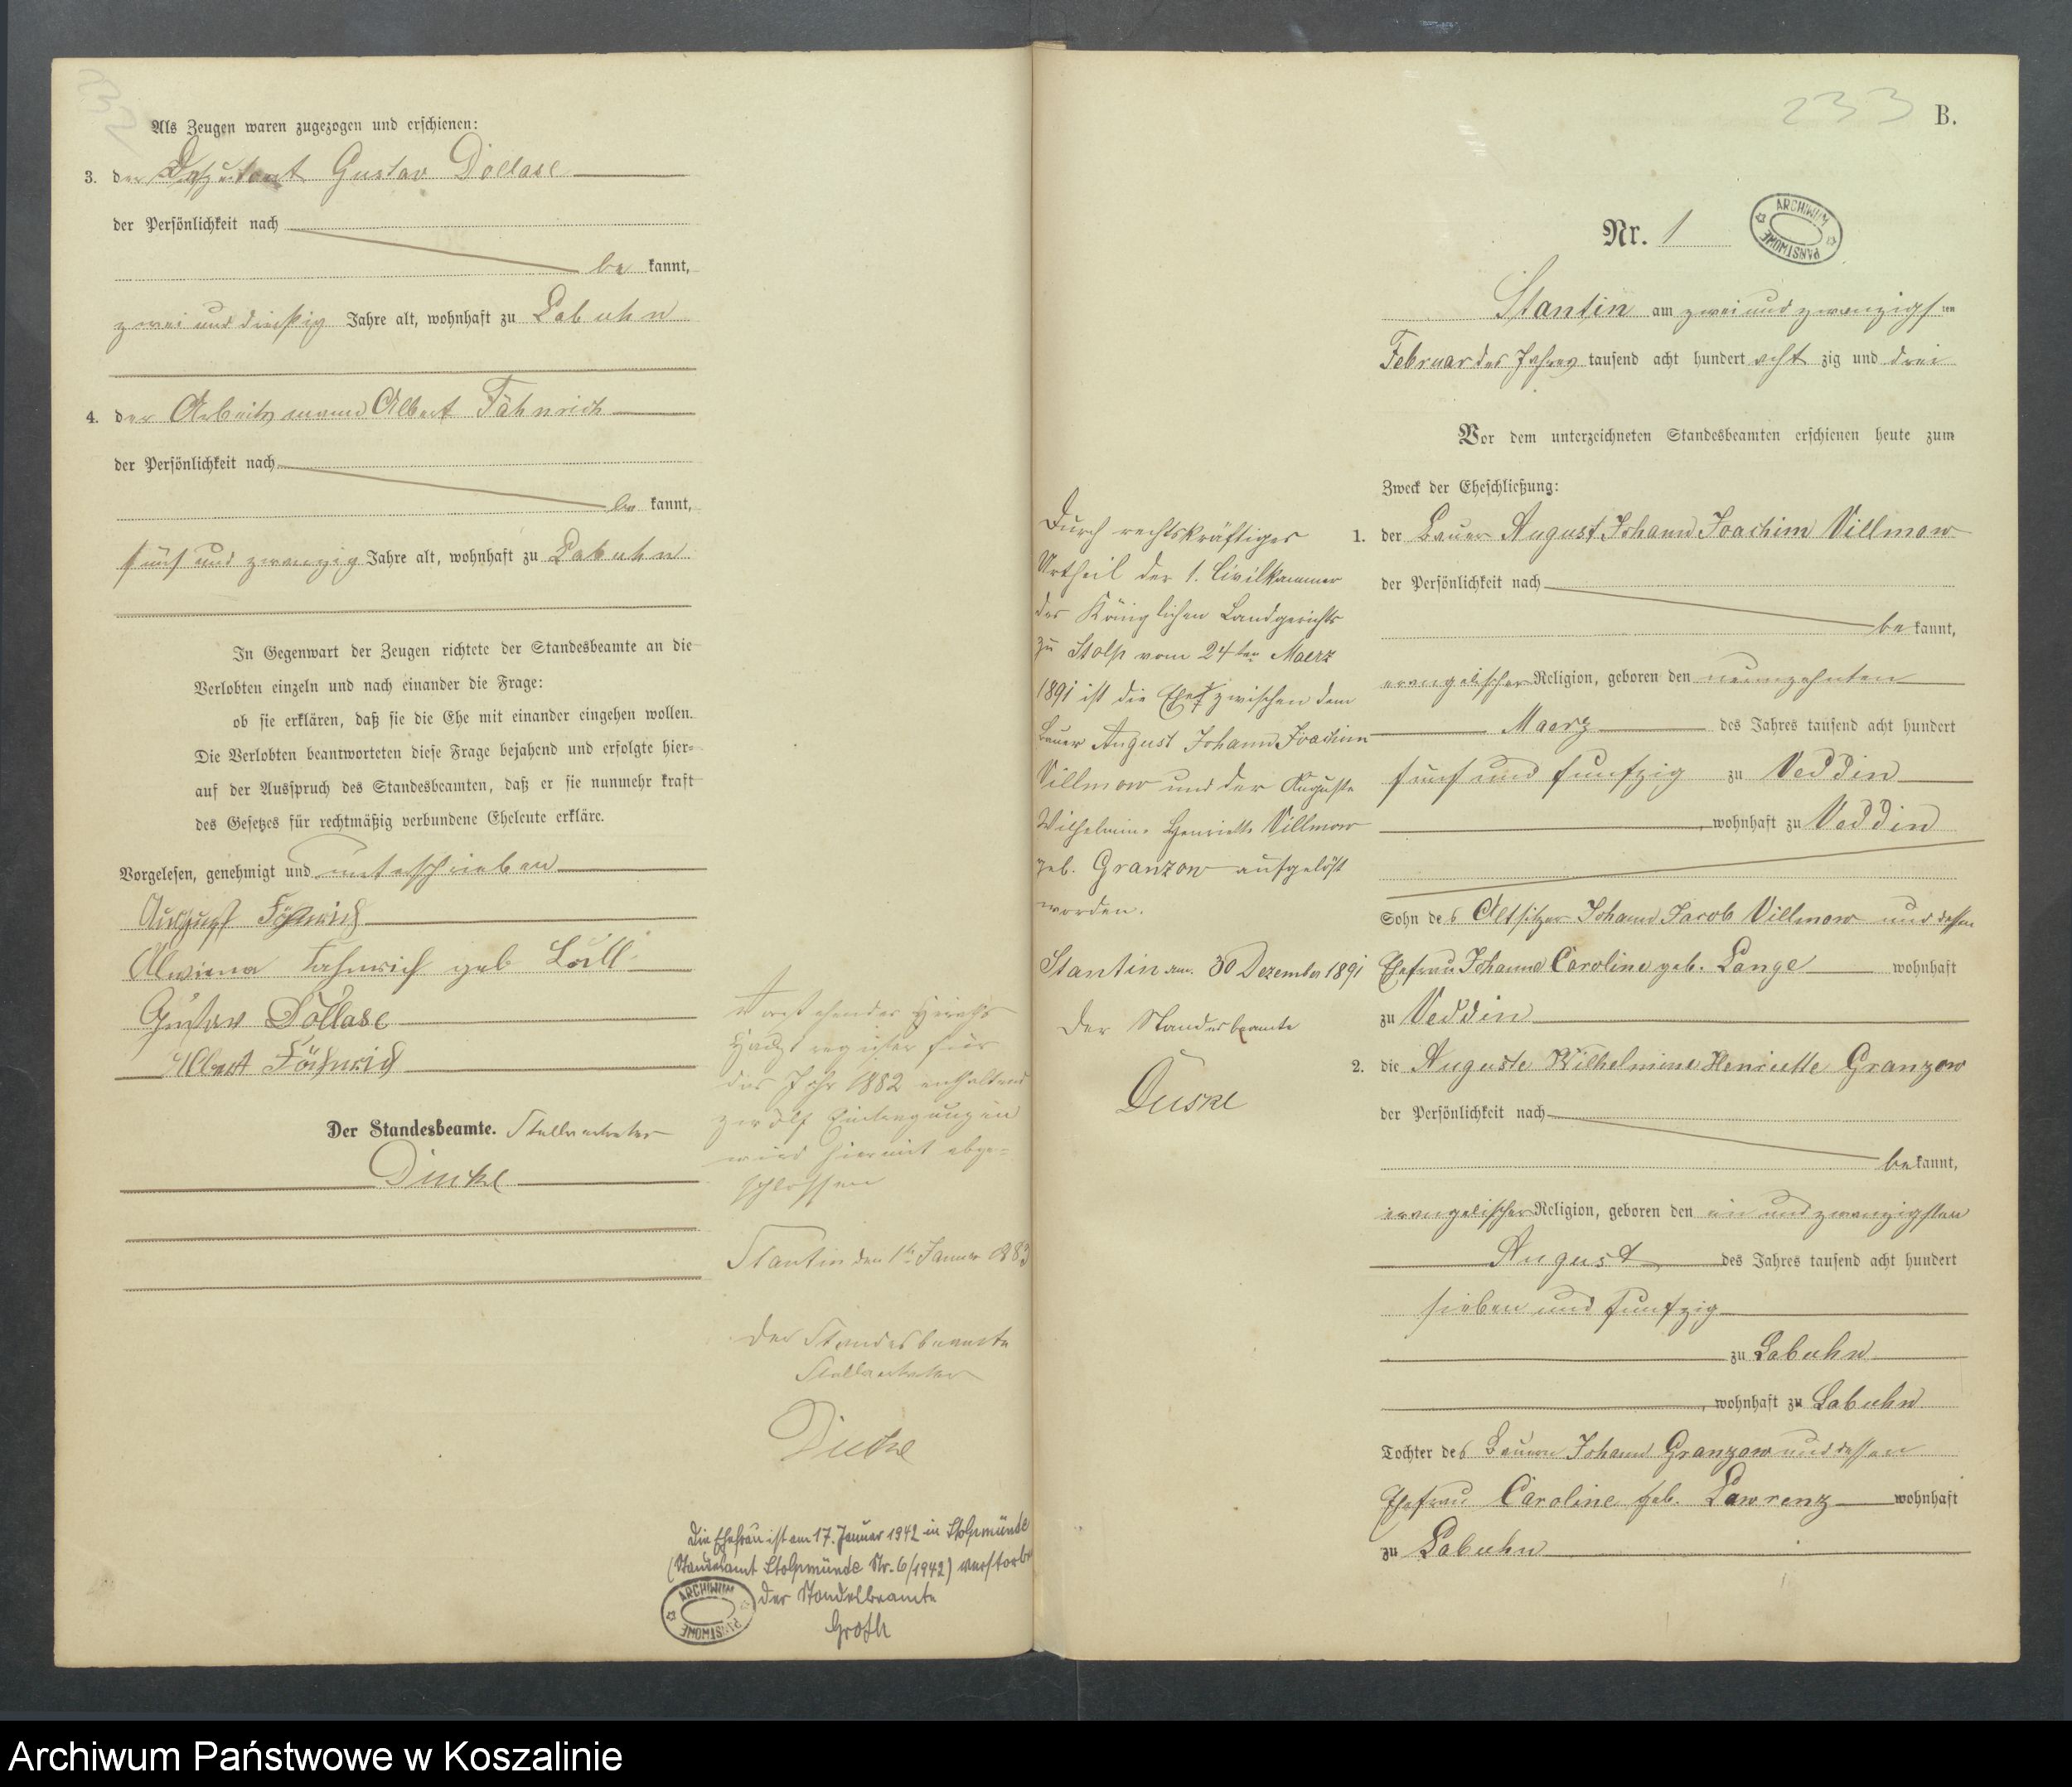 232
Als Zeugen waren zugezogen und erschienen:
3. der Deputant Gustav Dollase
der Persönlichkeit nach
be kannt,
zwei und dreißig Jahre alt, wohnhaft zu Labuhn
4. der Arbeitsmann Albert Fähnrich
der Persönlichkeit nach
be kannt,
fünf und zwanzig Jahre alt, wohnhaft zu Labuhn
In Gegenwart der Zeugen richtete der Standesbeamte an die
Verlobten einzeln und nach einander die Frage:
ob sie erklären, daß sie die Ehe mit einander eingehen wollen.
Die Verlobten beantworteten diese Frage bejahend und erfolgte hier-
auf der Ausspruch des Standesbeamten, daß er sie nunmehr kraft
des Gesetzes für rechtmäßig verbundene Eheleute erkläre.
Vorgelesen, genehmigt und unterschrieben
August Fähnrich
Alwiena Fähnrich geb
Gustav Dollase
Albert Fähnrich
Der Standesbeamte. Stellvertreter
Vorstehendes Heiraths
Haupt register für
das Jahr 1882 enthaltend
zwölf Eintragungen
wird hiermit abge=
schlossen
Stantin den 1ten Januar 1883
Der Standesbeamte
Stellvertreter
Die Ehefrau ist am 17. Januar 1942 in Stolpmünde
(Standesamt Stolpmünde Nr. 6/1942) verstorben
Der Standesbeamte
Groth
ARCHIWUM PAŃSTWOWE
233
B.
Nr. 1
ARCHIWUM PAŃSTWOWE
Stantin am zwei und zwanzigs ten
Februar des Jahres tausend acht hundert acht zig und drei
Vor dem unterzeichneten Standesbeamten erschienen heute zum
Zweck der Eheschließung:
1. der Bauer August Johann Joachim Villmow
der Persönlichkeit nach
be kannt,
evangelischer Religion, geboren den neunzehnten
Maerz des Jahres tausend acht hundert
fünf und funfzig zu Veddin
, wohnhaft zu Veddin
Sohn des Altsitzer Johann Jacob Villmow und dessen
Ehefrau Johanna Caroline geb. Lange wohnhaft
zu Veddin
2. die Auguste Wilhelmine Henriette Granzow
der Persönlichkeit nach
be kannt,
evangelischer Religion, geboren den ein und zwanzigsten
August des Jahres tausend acht hundert
sieben und funfzig
zu Labuhn
, wohnhaft zu Labuhn
Tochter des Bauern Johann Granzow und dessen
Ehefrau Caroline geb. Lawrenz wohnhaft
zu Labuhn
Durch rechtskräftiges
Urtheil der 1. Civilkammer
des Königlichen Landgerichts
zu Stolp vom 24ten Maerz
1891 ist die Ehe zwischen dem
Bauer August Johann Joachim
Villmow und der Auguste
Wilhelmine Henriette Villmow
geb. Granzow aufgelöst
worden.
Stantin am 30 Dezember 1891
Der Standesbeamte
Archiwum Państwowe w Koszalinie